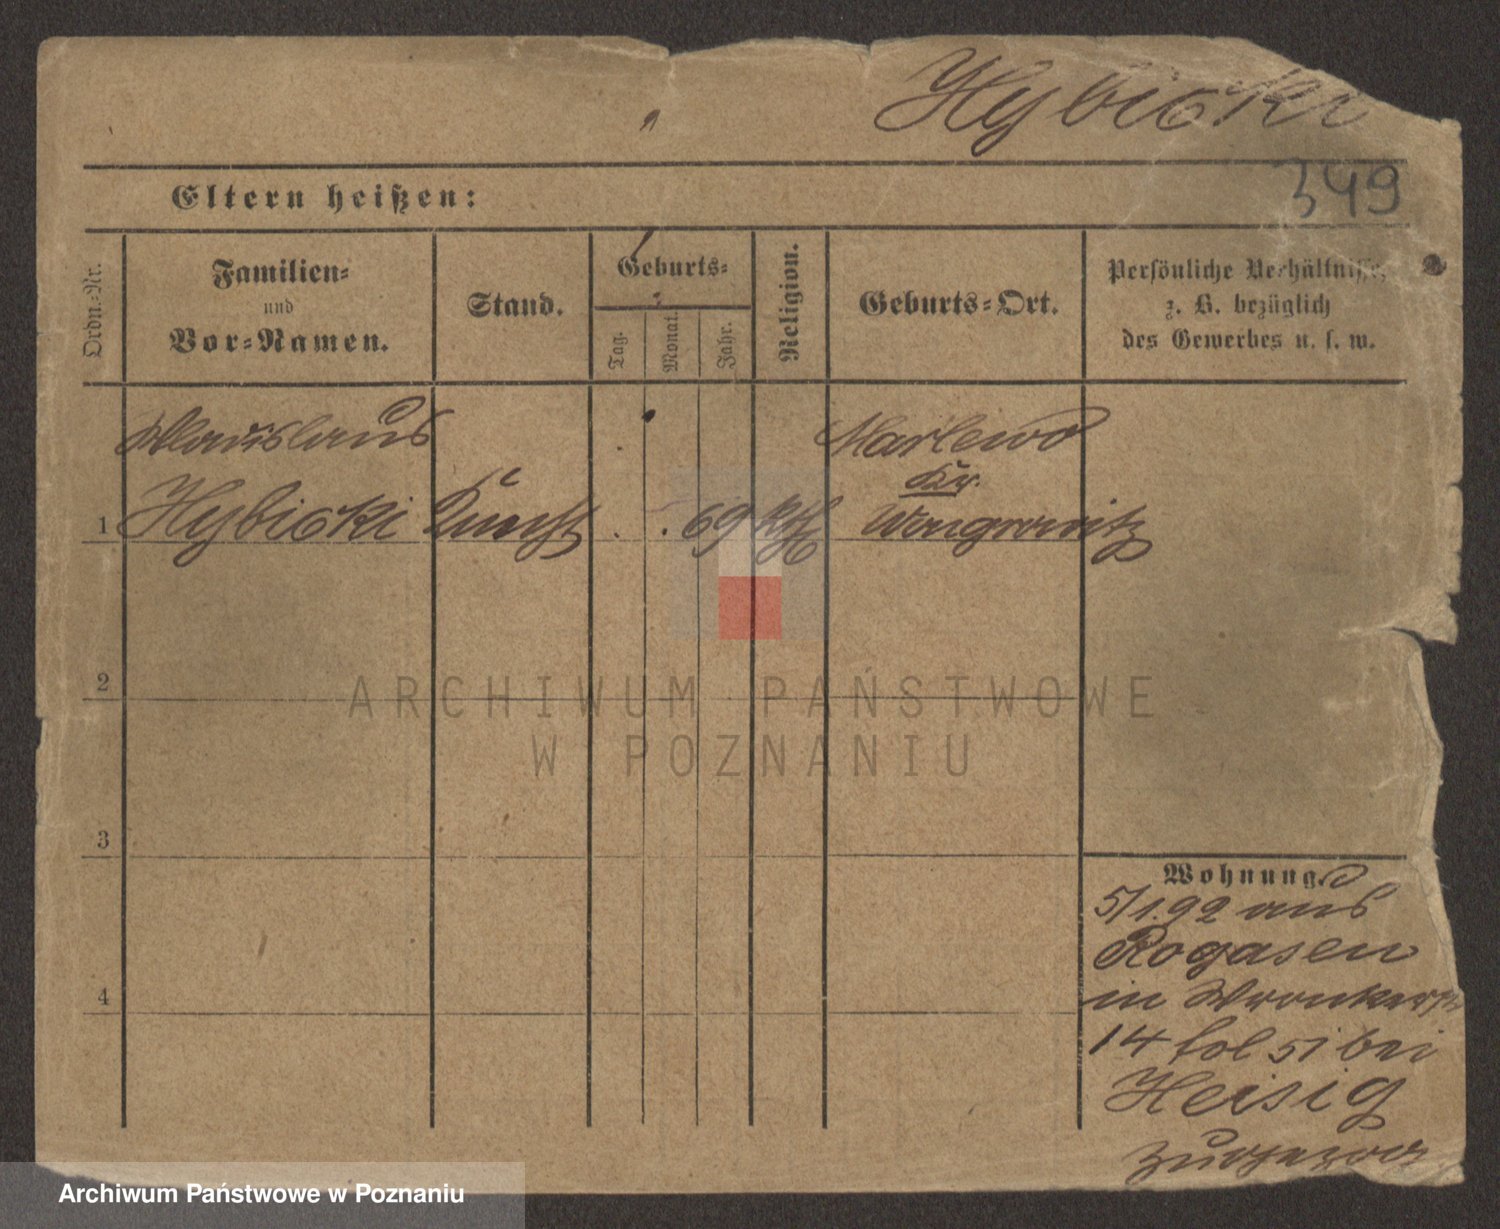 Hybicki
349
Eltern heißen:
Ordn.-Nr.
Familien-
und
Vor-Namen.
Stand.
Geburts-
Tag.
Monat.
Jahr.
Religion.
Geburts-Ort.
Persönliche Verhältnisse,
z. B. bezüglich
des Gewerbes u. s. w.
Wladislaus
Marlewo
Kr.
1 Hybicki 69 kth Wongrowitz
ARCHIWUM PAŃSTWOWE
W POZNANIU
2
3
4
Wohnung.
5/1.92 aus
Rogasen
in Wronkerstr
14 fol 51 bei
Heisig
zugezogen
Archiwum Państwowe w Poznaniu